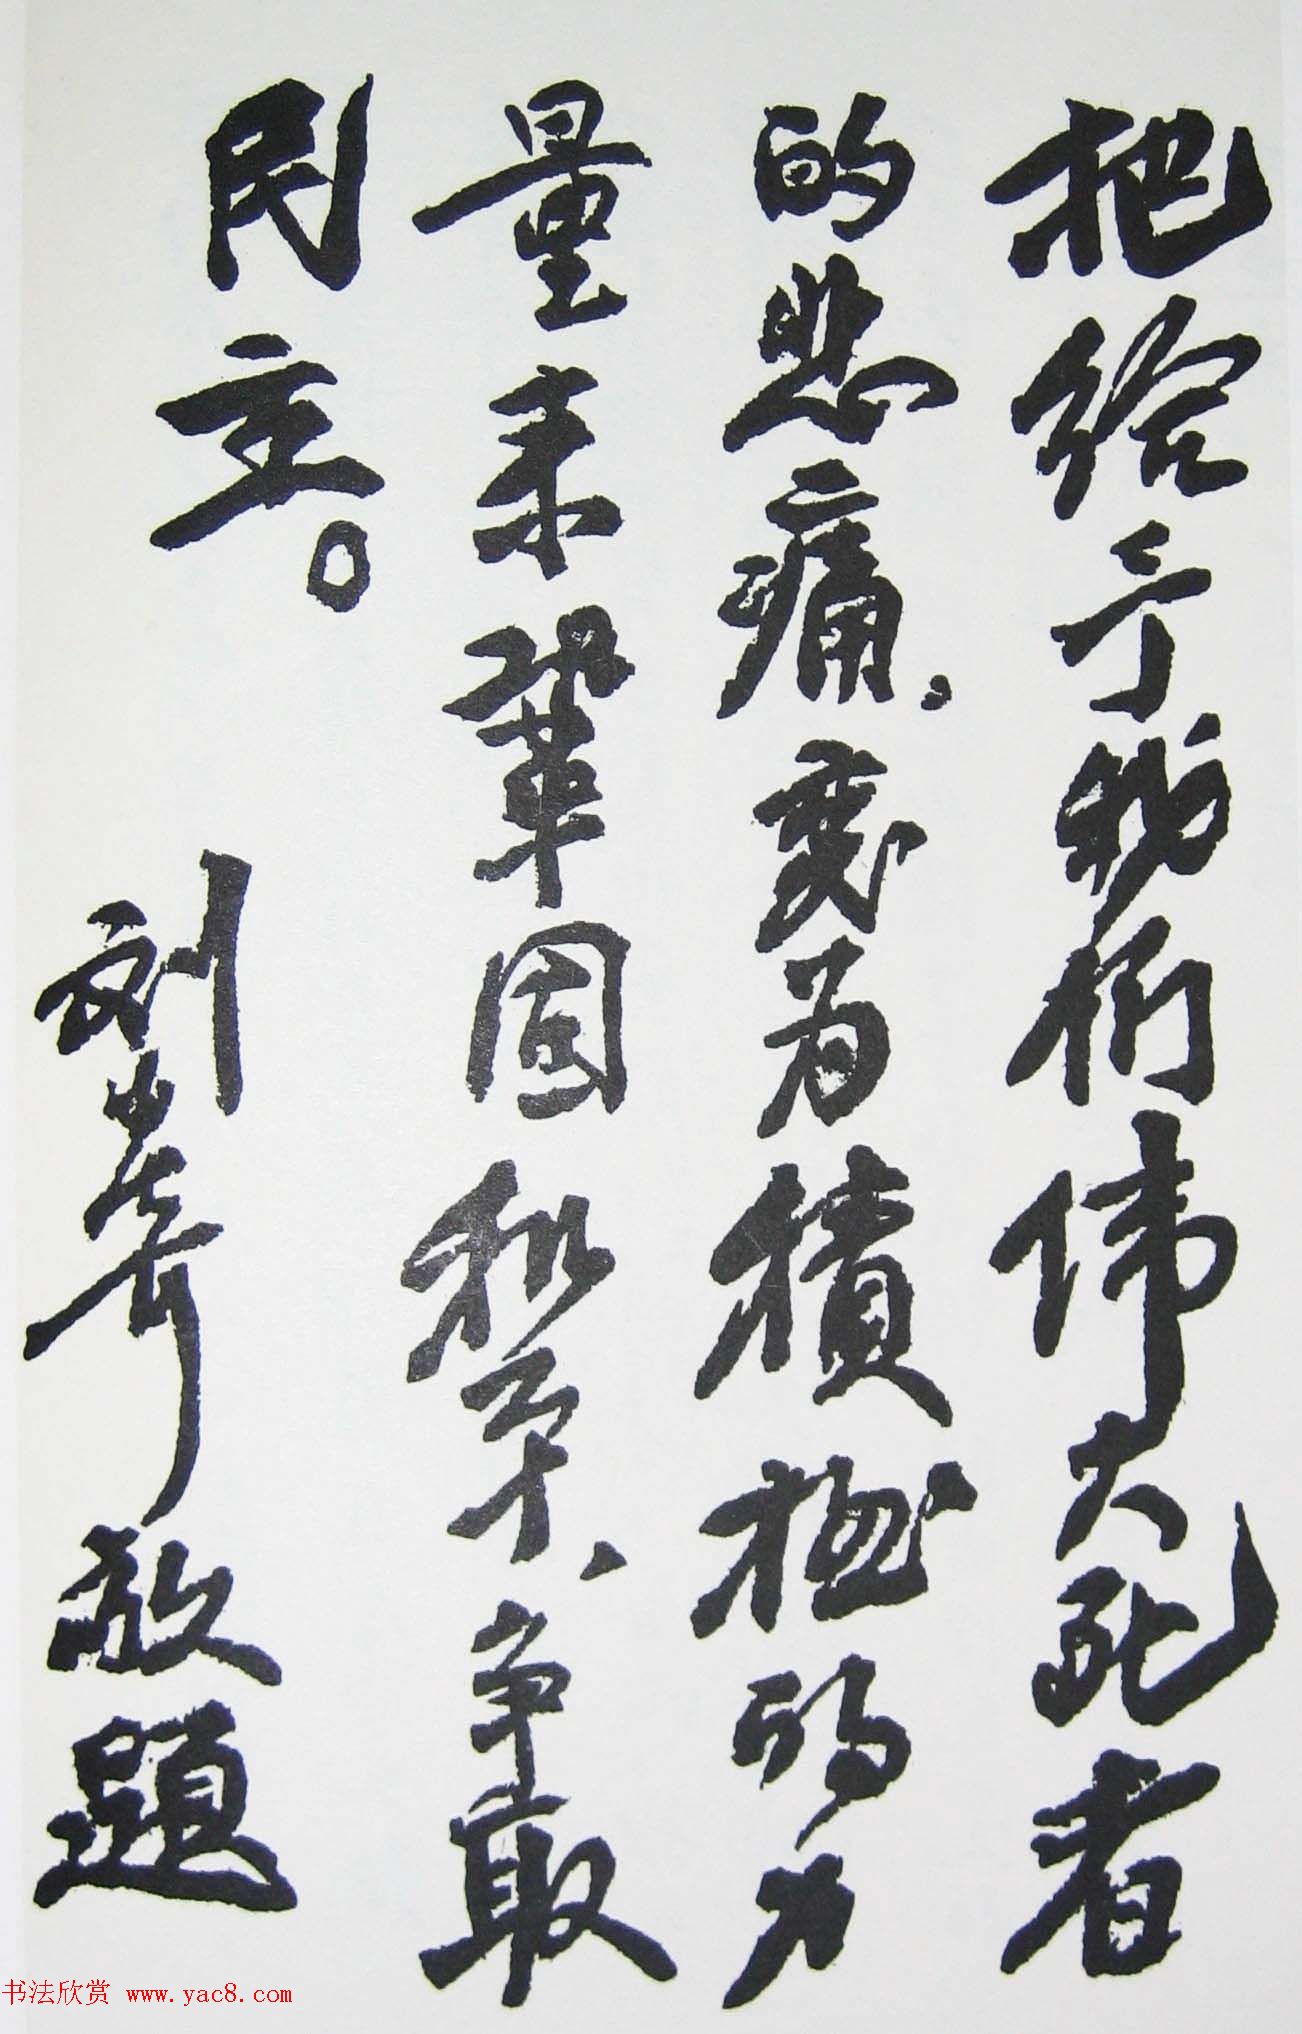 把给予我们伟大死者
的悲痛，变为积极的力
量来巩固和平、争取
民主。
刘少奇敬题
书法欣赏 www.yac8.com